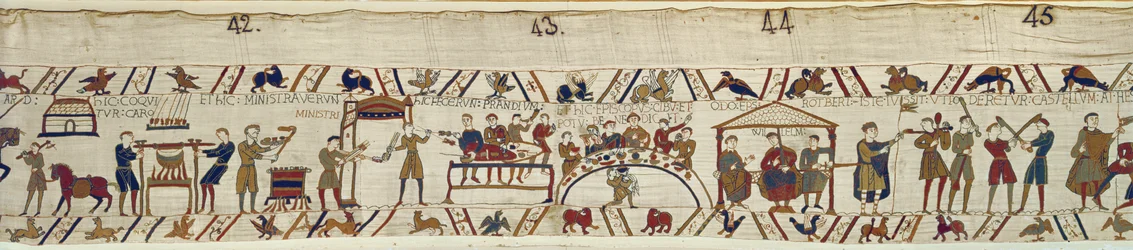 42.
43.
44
45
AR D:
hIC: COQVI
TVR: CARO
ET hIC: MINISTRAVERVN
MINISTRI
hIC FECERVN: PRANDIVM:
ET hIC: EPISCOPVS: CIBV: ET
POTV: BENEDICIT:
ODO: EPS:
WILLELM:
ROTBERT:
ISTE: IVSSIT: VT FODERETVR: CASTELLVM: AT